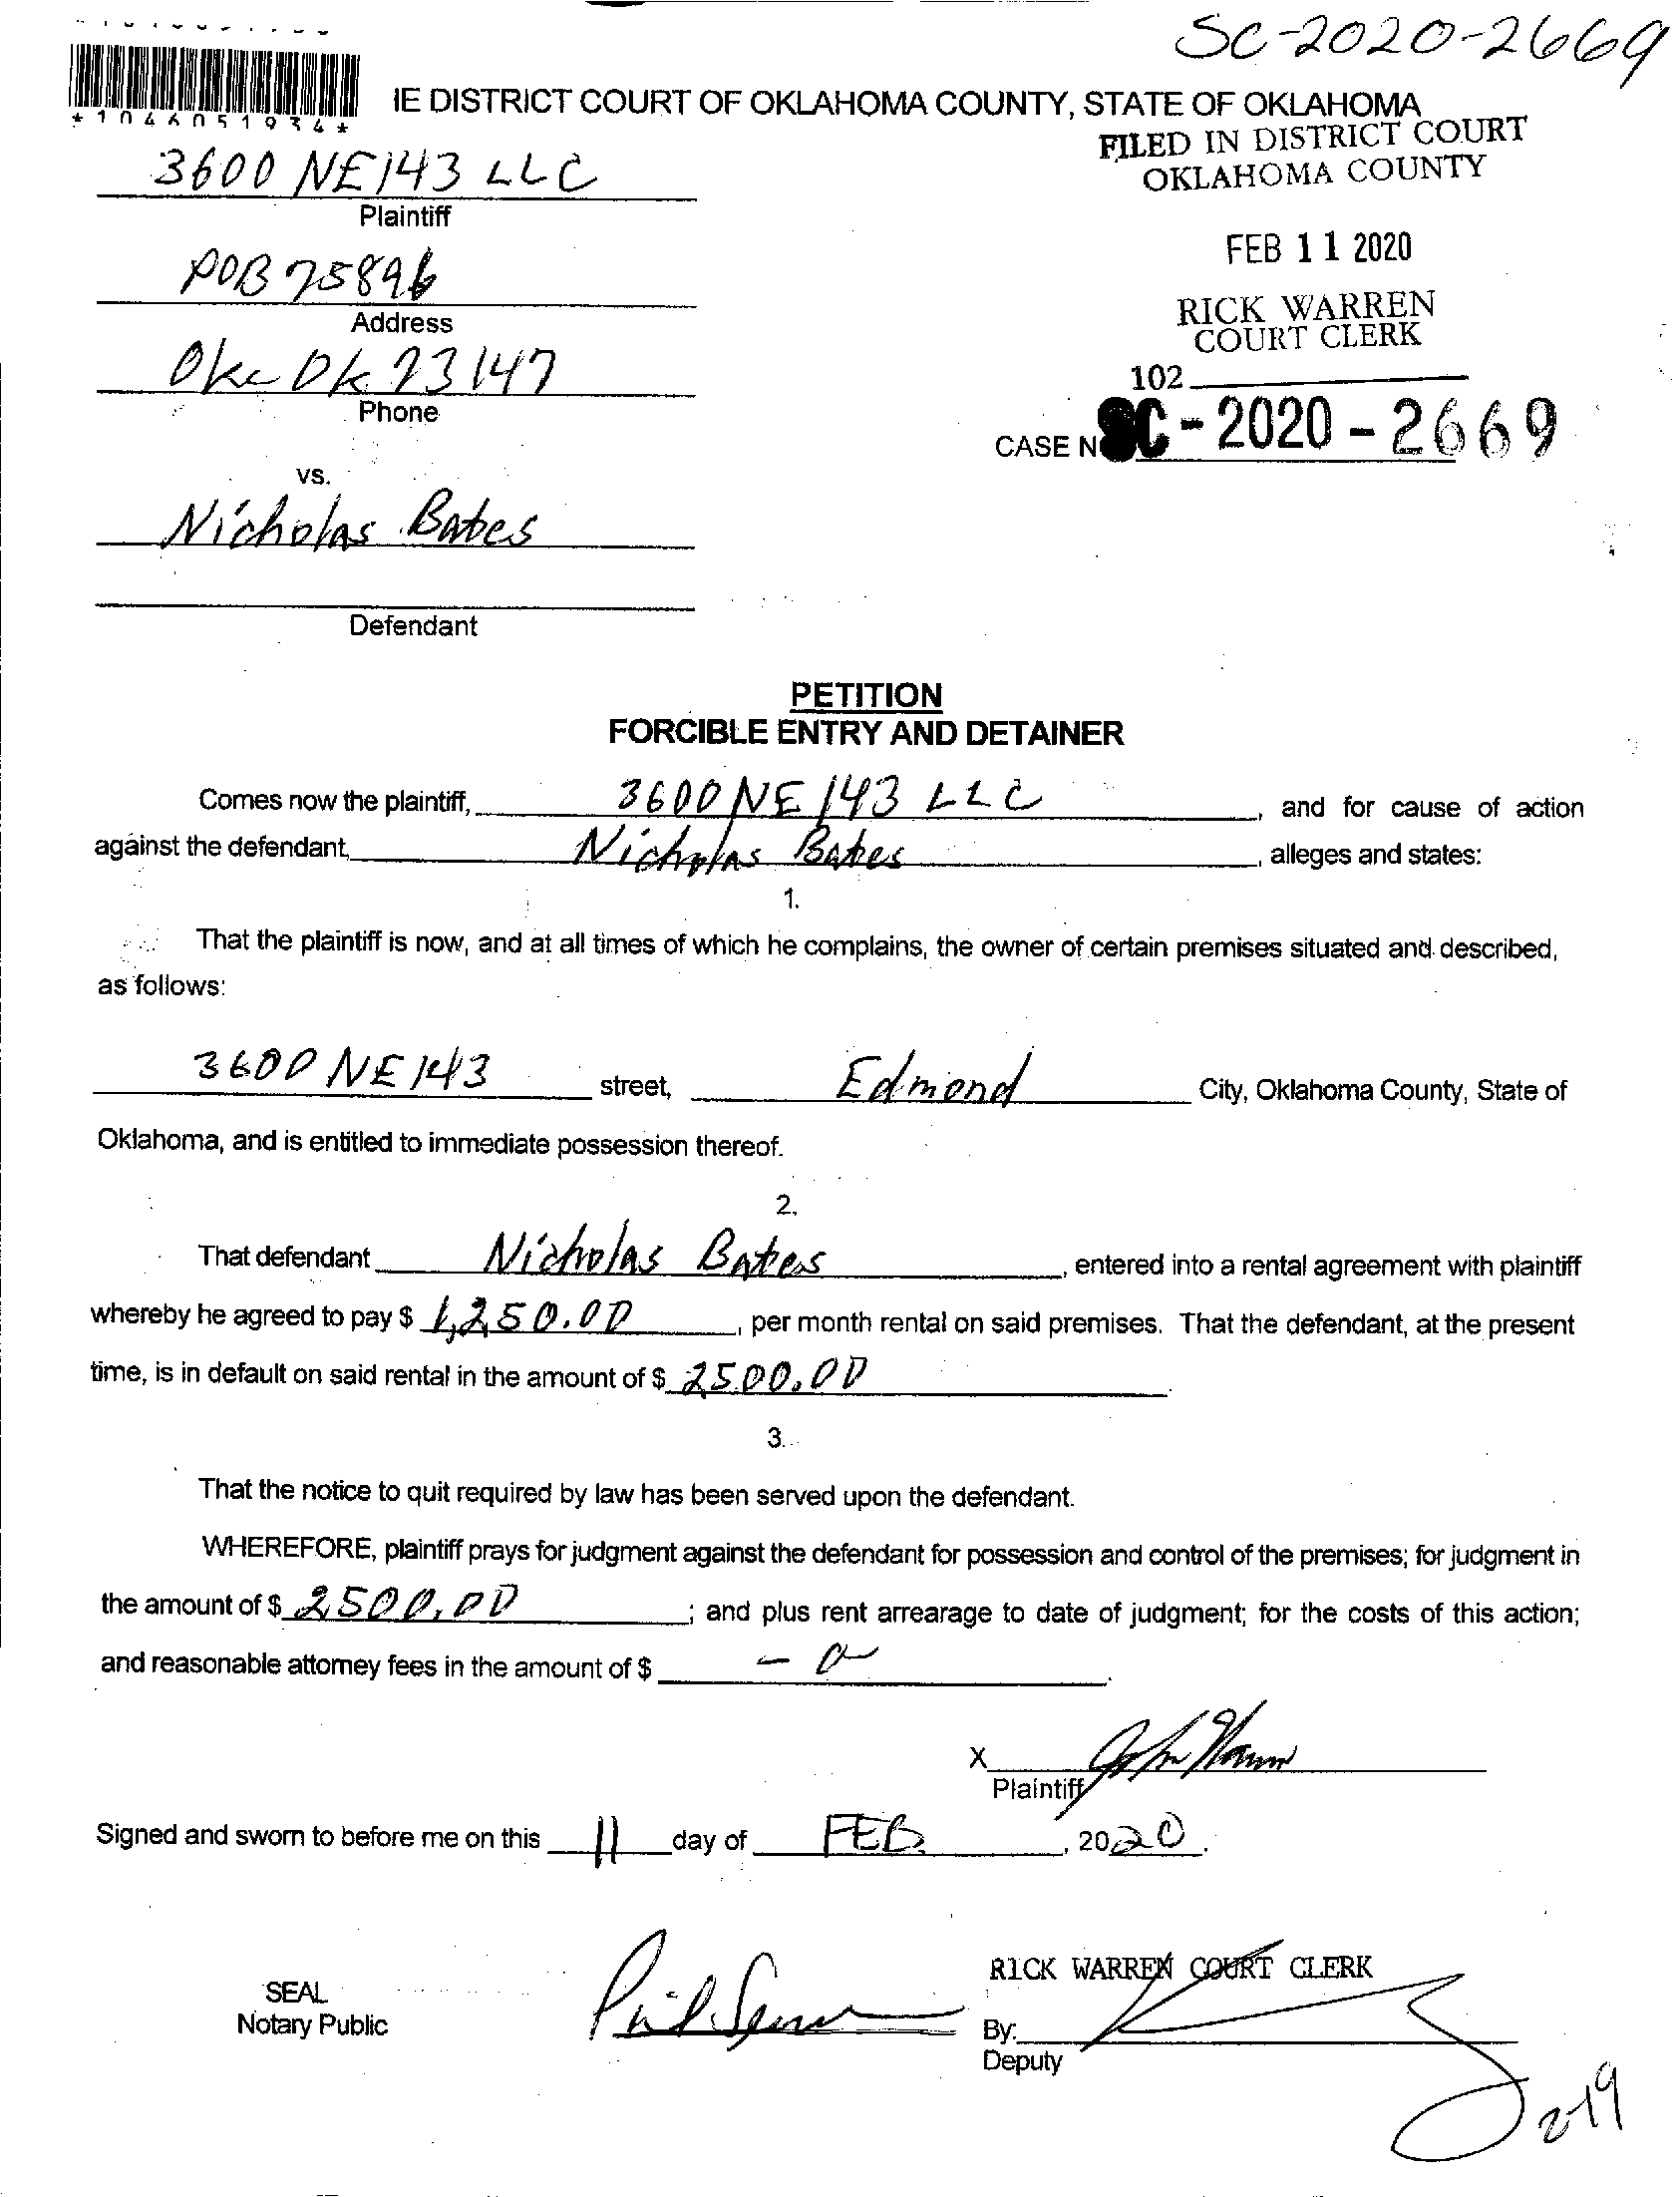 SC-2020-2669
*1046051934*
IE DISTRICT COURT OF OKLAHOMA COUNTY, STATE OF OKLAHOMA
FILED IN DISTRICT COURT
OKLAHOMA COUNTY
3600 NE 143 LLC
Plaintiff
FEB 11 2020
POB 75896
Address
RICK WARREN
COURT CLERK
Okc Ok 73147
Phone
102
CASE N SC-2020-2669
vs.
Nicholas Bates
Defendant
PETITION
FORCIBLE ENTRY AND DETAINER
Comes now the plaintiff, 3600 NE 143 LLC, and for cause of action
against the defendant, Nicholas Bates, alleges and states:
1.
That the plaintiff is now, and at all times of which he complains, the owner of certain premises situated and described,
as follows:
3600 NE 143 street, Edmond City, Oklahoma County, State of
Oklahoma, and is entitled to immediate possession thereof.
2.
That defendant Nicholas Bates, entered into a rental agreement with plaintiff
whereby he agreed to pay $ 1,250.00, per month rental on said premises. That the defendant, at the present
time, is in default on said rental in the amount of $ 2500.00.
3.
That the notice to quit required by law has been served upon the defendant.
WHEREFORE, plaintiff prays for judgment against the defendant for possession and control of the premises; for judgment in
the amount of $ 2500.00; and plus rent arrearage to date of judgment; for the costs of this action;
and reasonable attorney fees in the amount of $ - 0.
X
Plaintiff
Signed and sworn to before me on this 11 day of FEB., 2020.
RICK WARREN COURT CLERK
SEAL
Notary Public
By:
Deputy
2-19